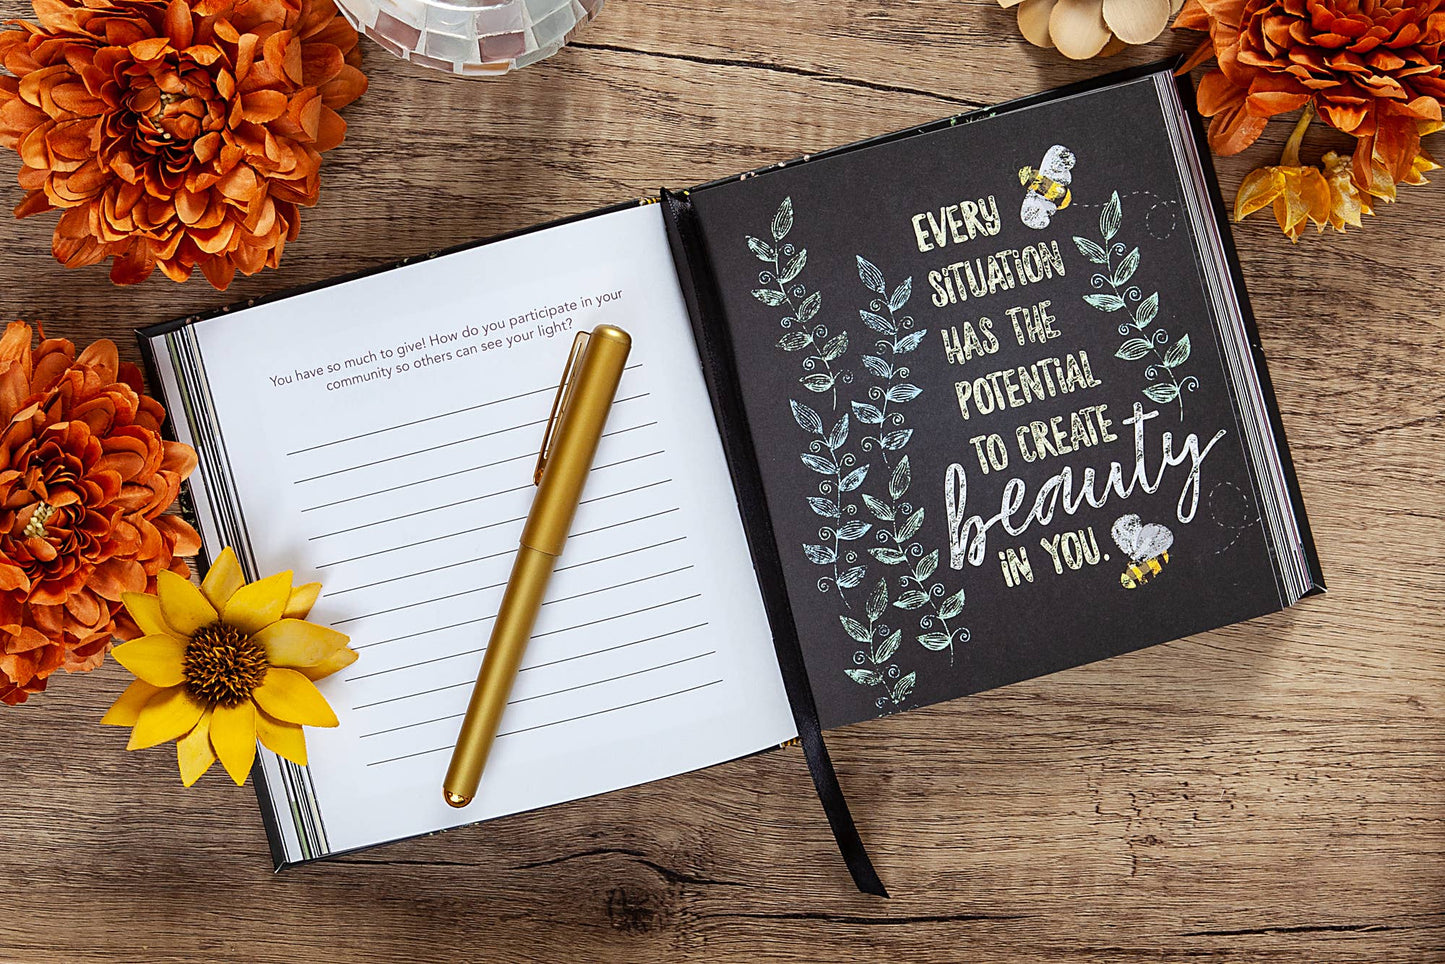 You have so much to give! How do you participate in your
community so others can see your light?
EVERY
SITUATION
HAS THE
POTENTIAL
TO CREATE
beauty
IN YOU.